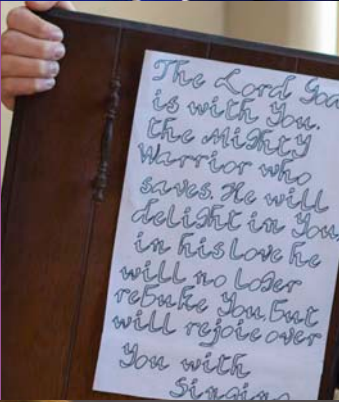 The Lord God
is with You.
the Mighty
Warrior who
saves. He will
delight in You.
in his Love he
will no loger
rebuke You, but
will rejoie over
You with
Singing